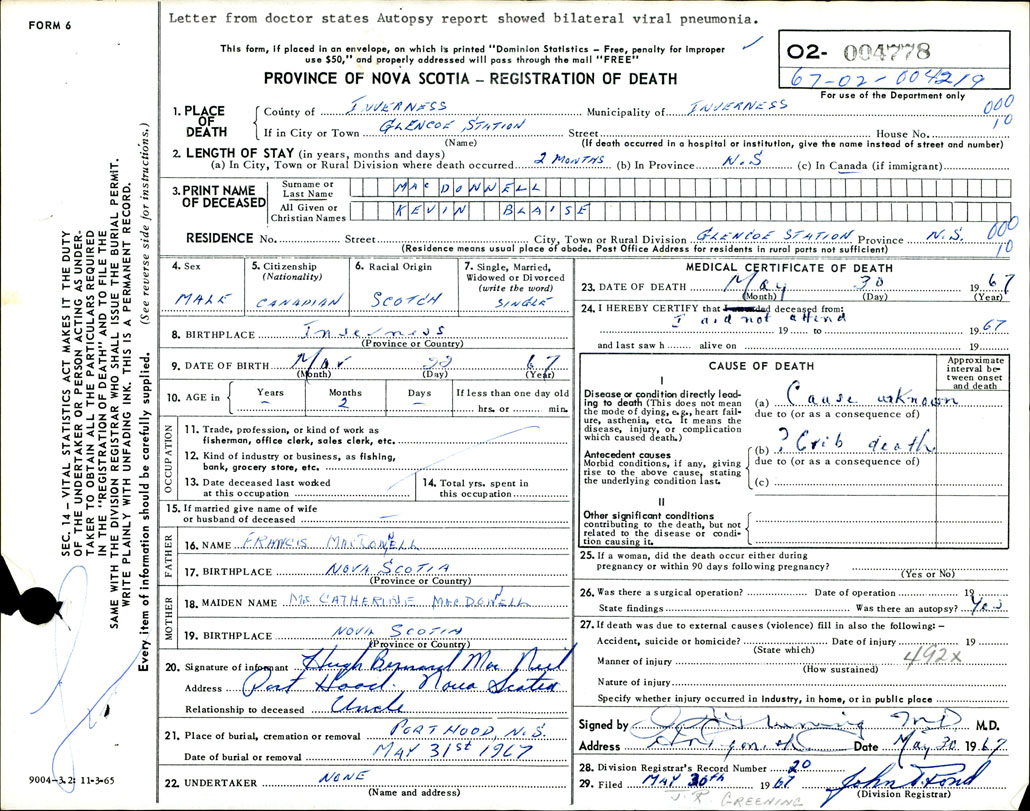 Letter from doctor states Autopsy report showed bilateral viral pneumonia.
FORM 6
This form, if placed in an envelope, on which is printed "Dominion Statistics – Free, penalty for improper
use $50," and properly addressed will pass through the mail "FREE"
02- 004778
67-02-004219
For use of the Department only
PROVINCE OF NOVA SCOTIA – REGISTRATION OF DEATH
1. PLACE OF DEATH
County of INVERNESS Municipality of INVERNESS 000
If in City or Town GLENCOE STATION Street House No. 10
(Name) (If death occurred in a hospital or institution, give the name instead of street and number)
2. LENGTH OF STAY (in years, months and days)
(a) In City, Town or Rural Division where death occurred 2 MONTHS (b) In Province N.S (c) In Canada (if immigrant)
3. PRINT NAME OF DECEASED
Surname or Last Name MACDONNELL
All Given or Christian Names KEVIN BLAISE
RESIDENCE No. Street City, Town or Rural Division GLENCOE STATION Province N.S. 000
(Residence means usual place of abode. Post Office Address for residents in rural parts not sufficient) 10
4. Sex
MALE
5. Citizenship
(Nationality)
CANADIAN
6. Racial Origin
SCOTCH
7. Single, Married,
Widowed or Divorced
(write the word)
SINGLE
8. BIRTHPLACE Inverness
(Province or Country)
9. DATE OF BIRTH Mar 67
(Month) (Day) (Year)
10. AGE in
Years –
Months 2
Days –
If less than one day old
hrs. or min.
OCCUPATION
11. Trade, profession, or kind of work as
fisherman, office clerk, sales clerk, etc.
12. Kind of industry or business, as fishing,
bank, grocery store, etc.
13. Date deceased last worked
at this occupation
14. Total yrs. spent in
this occupation
15. If married give name of wife
or husband of deceased –
FATHER
16. NAME FRANCIS MACDONNELL
17. BIRTHPLACE NOVA SCOTIA
(Province or Country)
MOTHER
18. MAIDEN NAME CATHERINE MACDONNELL
19. BIRTHPLACE NOVA SCOTIA
(Province or Country)
20. Signature of informant Hugh Bernard Mac Neil
Address Port Hood Nova Scotia
Relationship to deceased Uncle
21. Place of burial, cremation or removal PORT HOOD N.S.
Date of burial or removal MAY 31st 1967
22. UNDERTAKER NONE
(Name and address)
MEDICAL CERTIFICATE OF DEATH
23. DATE OF DEATH May 30 1967
(Month) (Day) (Year)
24. I HEREBY CERTIFY that deceased from:
I did not attend
19 to 1967
and last saw h alive on 19
CAUSE OF DEATH
Approximate interval between onset and death
I
Disease or condition directly leading to death (This does not mean
the mode of dying, e.g., heart failure, asthenia, etc. It means the
disease, injury, or complication
which caused death.)
(a) Cause unknown
due to (or as a consequence of)
Antecedent causes
Morbid conditions, if any, giving
rise to the above cause, stating
the underlying condition last.
(b) ? Crib death
due to (or as a consequence of)
(c)
II
Other significant conditions
contributing to the death, but not
related to the disease or condition causing it.
25. If a woman, did the death occur either during
pregnancy or within 90 days following pregnancy?
(Yes or No)
26. Was there a surgical operation? Date of operation 19
State findings Was there an autopsy? Yes
27. If death was due to external causes (violence) fill in also the following: –
Accident, suicide or homicide? Date of injury 19
(State which)
Manner of injury 492x
(How sustained)
Nature of injury
Specify whether injury occurred in Industry, in home, or in public place
Signed by MD M.D.
Address Date May 30 1967
28. Division Registrar's Record Number 20
29. Filed MAY 30th 1967 John Pond
(Division Registrar)
J. R. GREENING
SEC. 14 – VITAL STATISTICS ACT MAKES IT THE DUTY
OF THE UNDERTAKER OR PERSON ACTING AS UNDER-
TAKER TO OBTAIN ALL THE PARTICULARS REQUIRED
IN THE "REGISTRATION OF DEATH" AND TO FILE THE
SAME WITH THE DIVISION REGISTRAR WHO SHALL ISSUE THE BURIAL PERMIT.
WRITE PLAINLY WITH UNFADING INK. THIS IS A PERMANENT RECORD.
Every item of information should be carefully supplied. (See reverse side for instructions.)
9004-3.2: 11-3-65